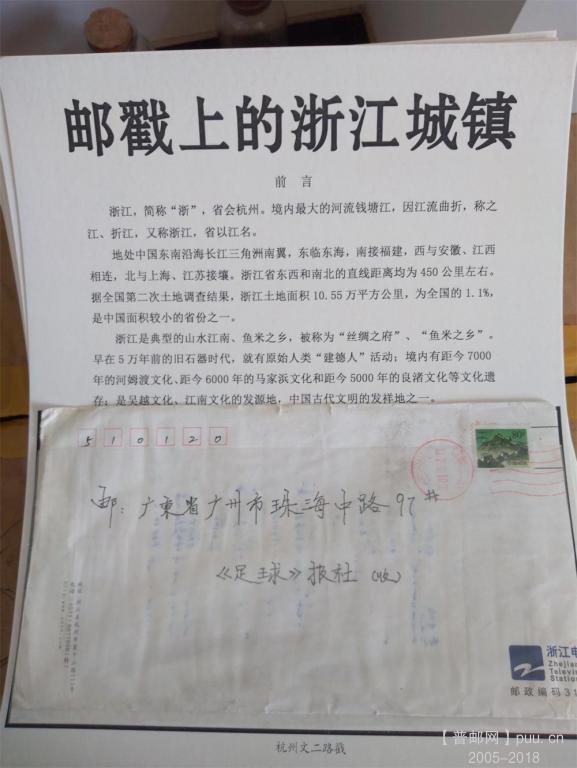 邮戳上的浙江城镇
前 言
浙江，简称“浙”，省会杭州。境内最大的河流钱塘江，因江流曲折，称之
江、折江，又称浙江，省以江名。
地处中国东南沿海长江三角洲南翼，东临东海，南接福建，西与安徽、江西
相连，北与上海、江苏接壤。浙江省东西和南北的直线距离均为450公里左右。
据全国第二次土地调查结果，浙江土地面积10.55万平方公里，为全国的1.1%，
是中国面积较小的省份之一。
浙江是典型的山水江南、鱼米之乡，被称为“丝绸之府”、“鱼米之乡”。
早在5万年前的旧石器时代，就有原始人类“建德人”活动；境内有距今7000
年的河姆渡文化、距今6000年的马家浜文化和距今5000年的良渚文化等文化遗
存；是吴越文化、江南文化的发源地，中国古代文明的发祥地之一。
510120
邮：广东省广州市珠海中路97#
《足球》报社（收）
80
浙江电
Zhejian
Televis
Station
邮政编码31
杭州文二路戳
【普邮网】puu.cn
2005-2018